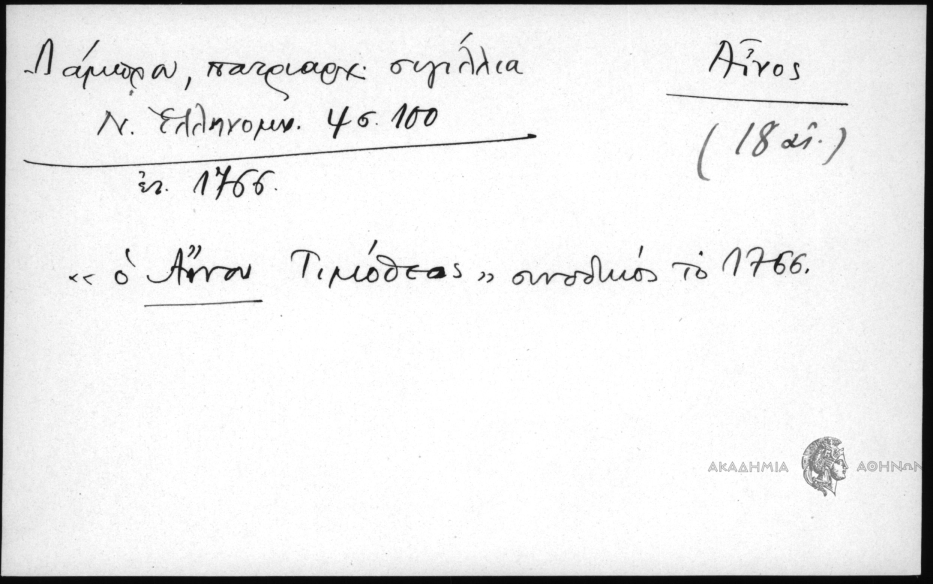 Λάμπρου, πατριαρχ. σιγίλλια
Ν. Ἑλληνομν. 4 σ. 100
ἔτ. 1766.
Αἶνος
(18 αἰ.)
«ὁ Αἴνου Τιμόθεος» συνοδικός τὸ 1766.
ΑΚΑΔΗΜΙΑ ΑΘΗΝΩΝ